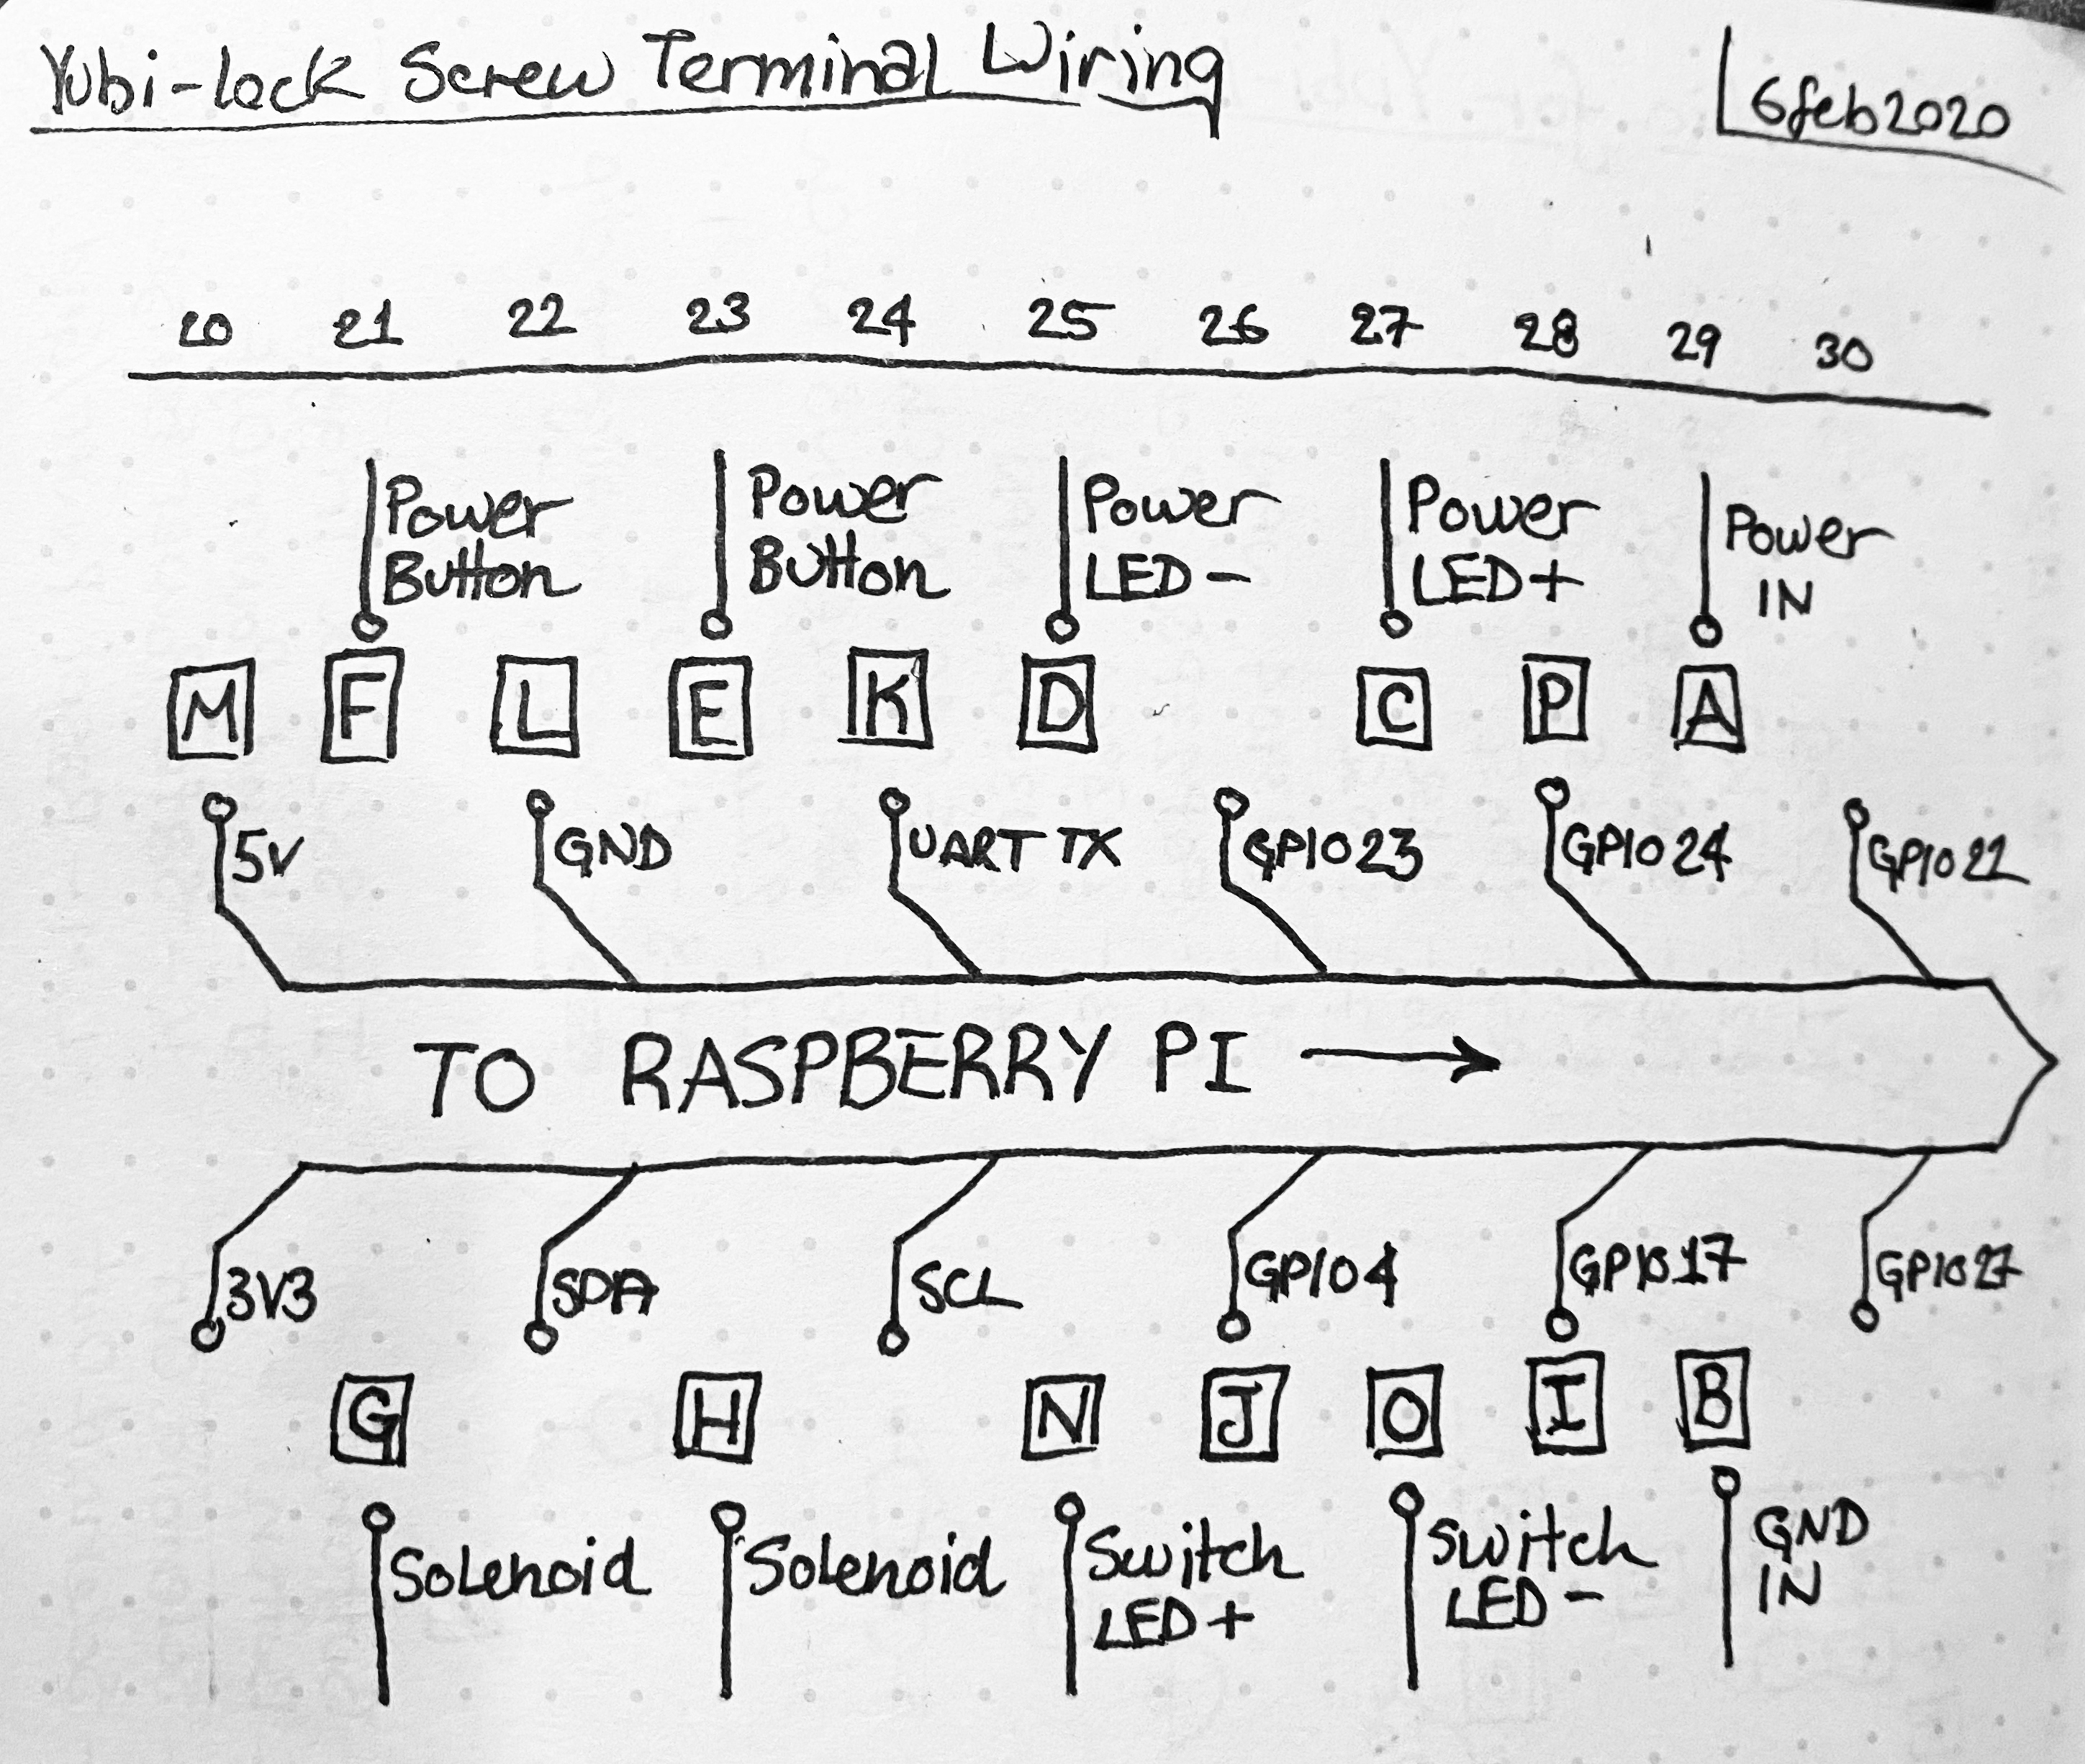 Yubi-lock Screw Terminal Wiring
6feb2020
20 21 22 23 24 25 26 27 28 29 30
Power Power Power Power Power
Button Button LED - LED + IN
M F L E K D C P A
5V GND UART TX GPIO 23 GPIO 24 GPIO 22
TO RASPBERRY PI →
3V3 SDA SCL GPIO 4 GPIO 17 GPIO 27
G H N J O I B
Solenoid Solenoid Switch Switch GND
LED + LED - IN